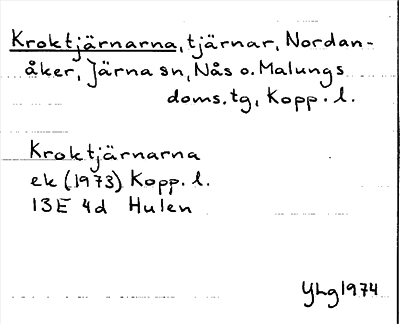 Kroktjärnarna, tjärnar, Nordan-
åker, Järna sn, Nås o. Malungs
doms. tg, Kopp. l.
Kroktjärnarna
ek (1973) Kopp. l.
13E 4d Hulen
YLg 1974